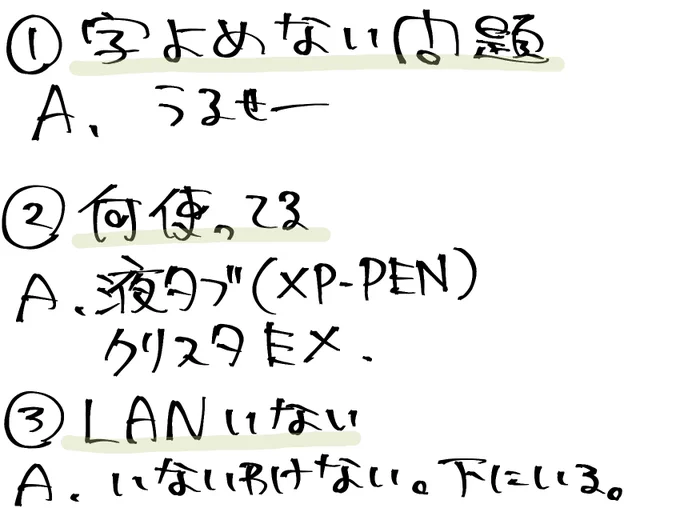 ① 字よめない問題
A、うるせー
② 何使ってる
A、液タブ(XP-PEN)
クリスタEX.
③ LANいない
A、いないわけない。下にいる。